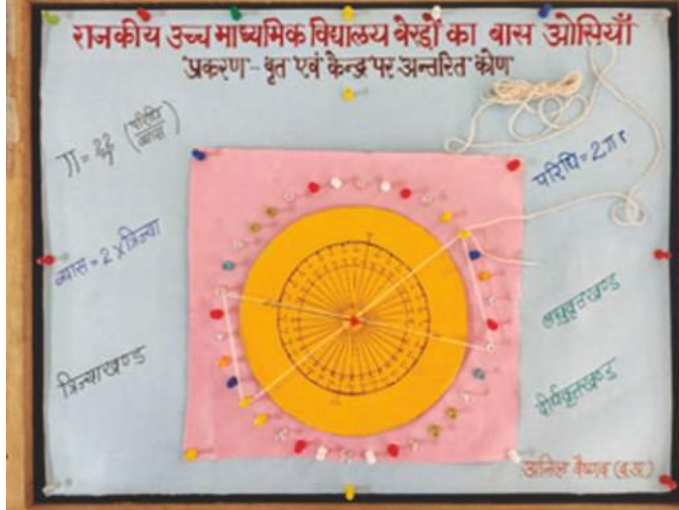 राजकीय उच्च माध्यमिक विद्यालय बेरडों का बास ओसियाँ
प्रकरण - वृत एवं केन्द्र पर अन्तरित कोण
π = 22/7 (परिधि/व्यास)
परिधि = 2πr
व्यास = 2 x त्रिज्या
लघुवृतखण्ड
त्रिज्याखण्ड
दीर्घवृतखण्ड
अनिल वैष्णव (व.अ.)